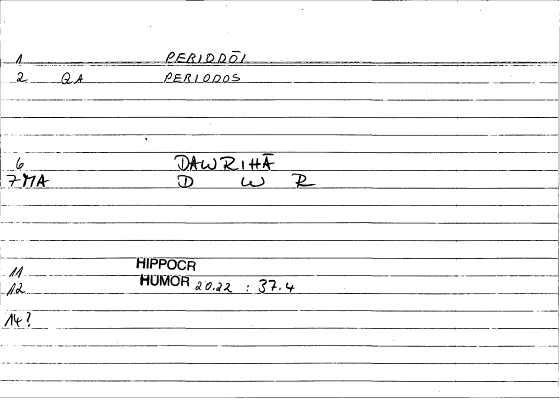 1 PERIODŌI
2 QA PERIODOS
6 DAWRIHĀ
7 MA D W R
11 HIPPOCR
12 HUMOR 20.22 : 37.4
14?